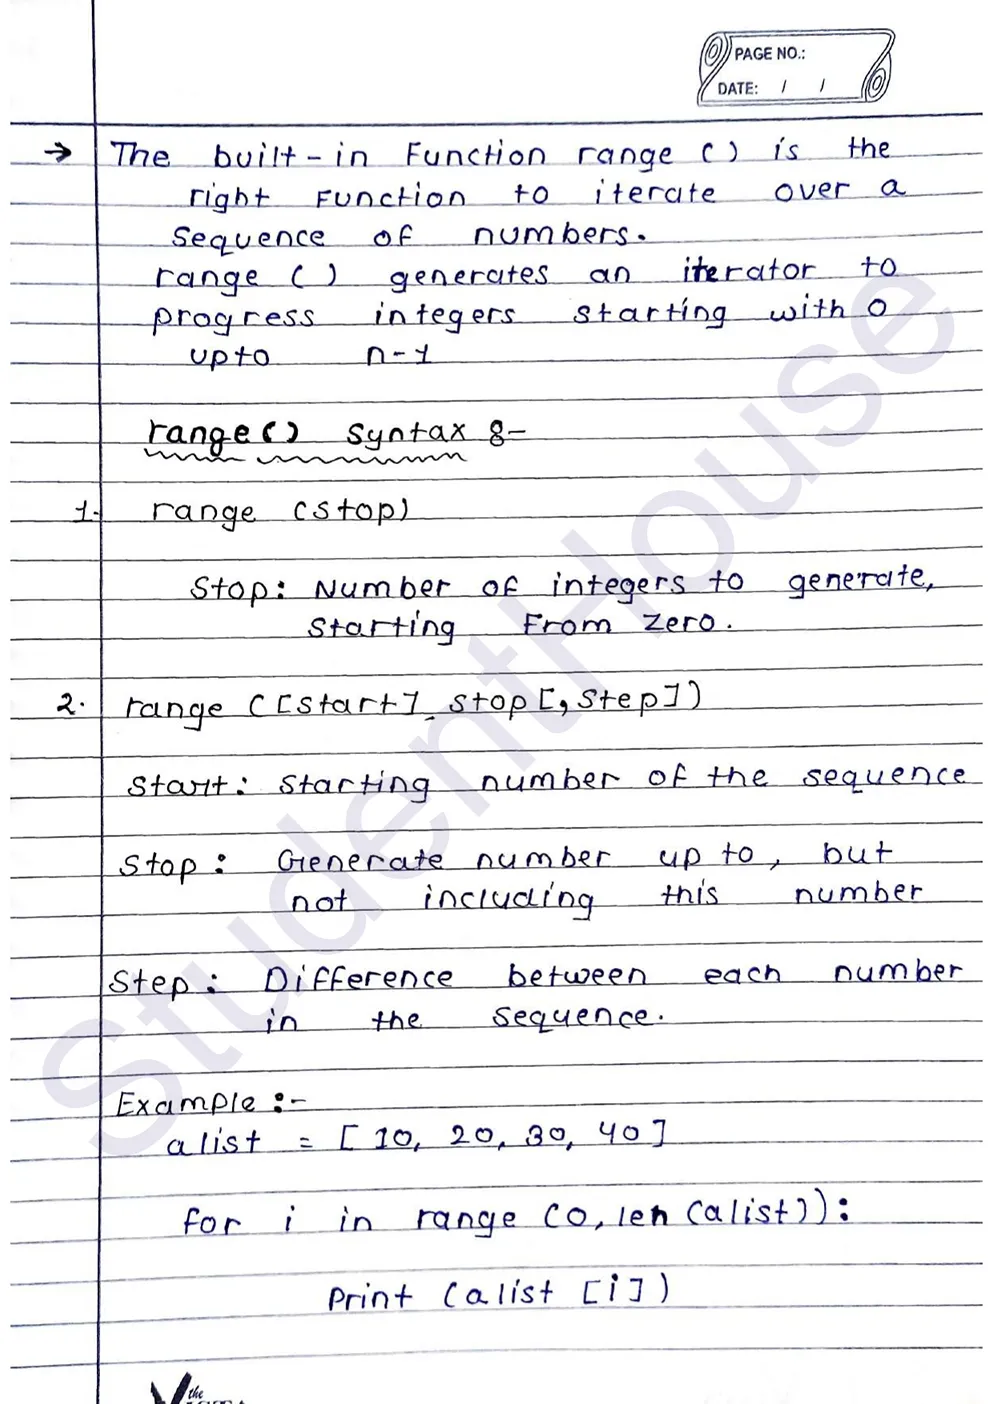 PAGE NO.:
DATE: / /
→ The built-in Function range () is the
right Function to iterate over a
sequence of numbers.
range () generates an iterator to
progress integers starting with 0
upto n-1
range() syntax :-
1. range (stop)
Stop: Number of integers to generate,
starting From zero.
2. range ([start], stop[,step])
Start: Starting number of the sequence
Stop: Generate number up to, but
not including this number
Step: Difference between each number
in the sequence.
Example :-
alist = [10, 20, 30, 40]
for i in range (0, len (alist)):
Print (alist [i])
StudentHouse
the